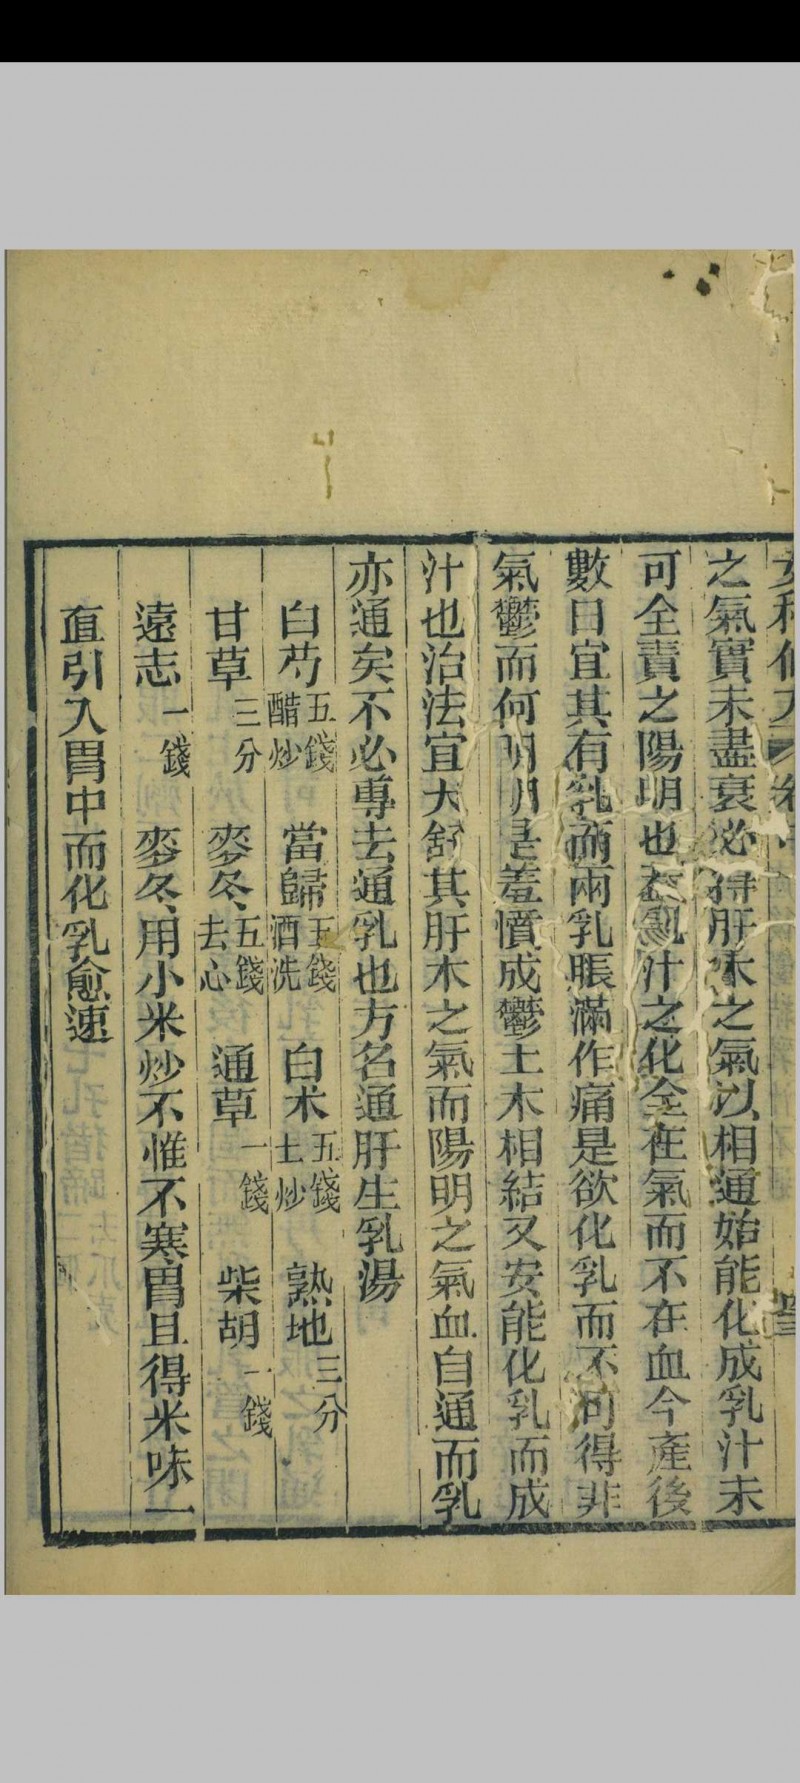 女科仙方 卷 四三
之氣實未盡衰必得肝木之氣以相通始能化成乳汁未
可全責之陽明也葢乳汁之化全在氣而不在血今產後
數日宜其有乳而兩乳脹滿作痛是欲化乳而不可得非
氣鬱而何明明是羞憤成鬱土木相結又安能化乳而成
汁也治法宜大舒其肝木之氣而陽明之氣血自通而乳
亦通矣不必專去通乳也方名通肝生乳湯
白芍五錢醋炒 當歸五錢酒洗 白朮五錢土炒 熟地三分
甘草三分 麥冬五錢去心 通草一錢 柴胡一錢
遠志一錢 麥冬用小米炒不惟不寒胃且得米味一
直引入胃中而化乳愈速